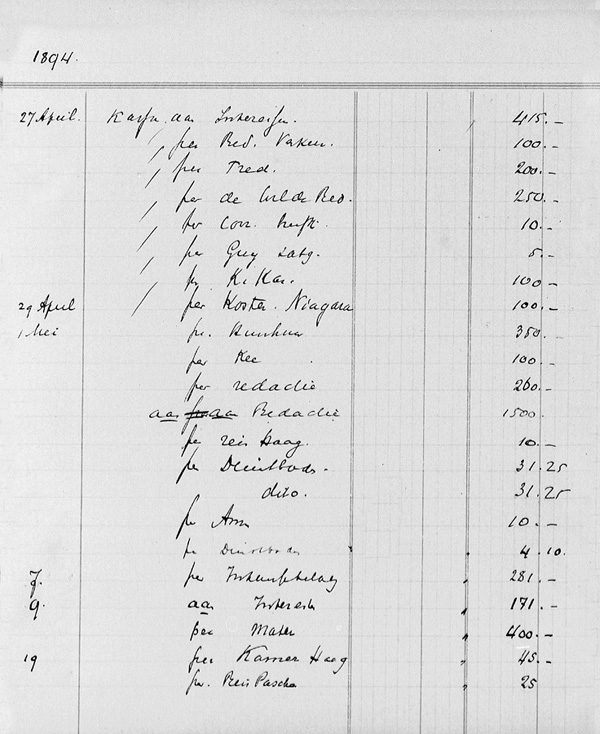 1894.
27 April. Kassa. aan Interessen. 415.-
" per Bed. Varken. 100.-
" per Tred. 200.-
" per de Wilde Bed. 250.-
" per Corr. 10.-
" per Guy Satg. 5.-
" per K. Kas. 100-
29 April " per Koster. Niagara 100.-
1 Mei per. 350.
per Kee 100.-
per redactie 260.-
aan per aan Redactie 1500.
per reis Haag. 10.-
per Dienstbode. 31.25
dito. 31.25
per 10.-
per Dienstbode 4.10.
7. per 281.-
9. aan Interest 171.-
per Mater 400.-
19 per Kamer Haag 45.-
per. Reis Pascha 25